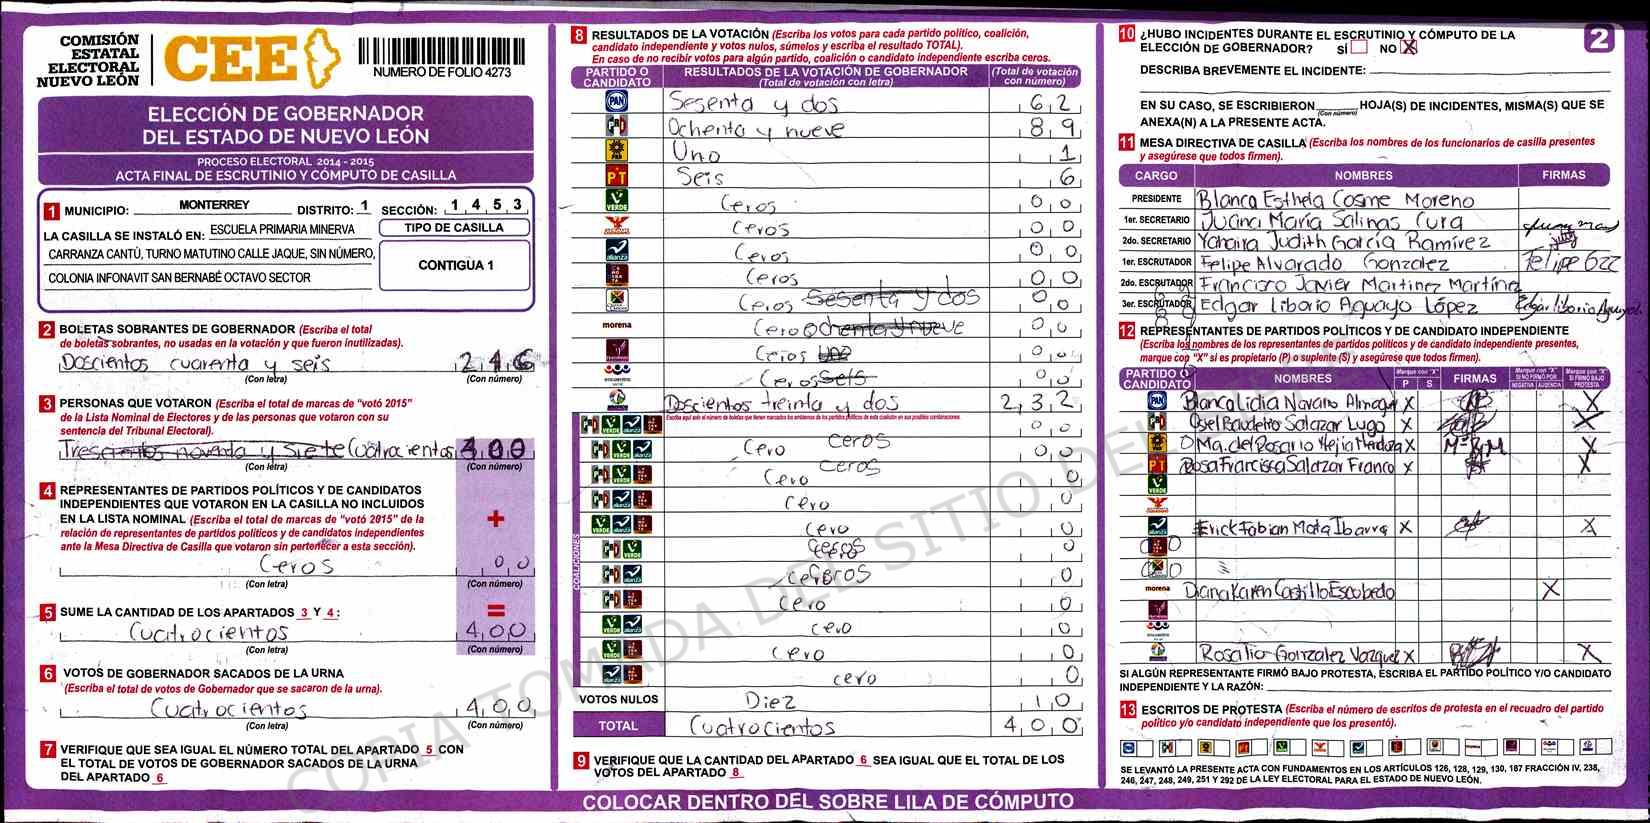 COMISIÓN
ESTATAL
ELECTORAL
NUEVO LEÓN
CEE
NUMERO DE FOLIO 4273
ELECCIÓN DE GOBERNADOR
DEL ESTADO DE NUEVO LEÓN
PROCESO ELECTORAL 2014 - 2015
ACTA FINAL DE ESCRUTINIO Y CÓMPUTO DE CASILLA
1 MUNICIPIO: MONTERREY DISTRITO: 1 SECCIÓN: 1 4 5 3
LA CASILLA SE INSTALÓ EN: ESCUELA PRIMARIA MINERVA
CARRANZA CANTÚ, TURNO MATUTINO CALLE JAQUE, SIN NÚMERO,
COLONIA INFONAVIT SAN BERNABÉ OCTAVO SECTOR
TIPO DE CASILLA
CONTIGUA 1
2 BOLETAS SOBRANTES DE GOBERNADOR (Escriba el total
de boletas sobrantes, no usadas en la votación y que fueron inutilizadas).
Doscientos cuarenta y seis 246
(Con letra) (Con número)
3 PERSONAS QUE VOTARON (Escriba el total de marcas de "votó 2015"
de la Lista Nominal de Electores y de las personas que votaron con su
sentencia del Tribunal Electoral).
Trescientos noventa y siete Cuatrocientos 400
(Con letra) (Con número)
4 REPRESENTANTES DE PARTIDOS POLÍTICOS Y DE CANDIDATOS
INDEPENDIENTES QUE VOTARON EN LA CASILLA NO INCLUIDOS
EN LA LISTA NOMINAL (Escriba el total de marcas de "votó 2015" de la
relación de representantes de partidos políticos y de candidatos independientes
ante la Mesa Directiva de Casilla que votaron sin pertenecer a esta sección).
+
Ceros 00
(Con letra) (Con número)
=
5 SUME LA CANTIDAD DE LOS APARTADOS 3 Y 4:
Cuatrocientos 400
(Con letra) (Con número)
6 VOTOS DE GOBERNADOR SACADOS DE LA URNA
(Escriba el total de votos de Gobernador que se sacaron de la urna).
Cuatrocientos 400
(Con letra) (Con número)
7 VERIFIQUE QUE SEA IGUAL EL NÚMERO TOTAL DEL APARTADO 5 CON
EL TOTAL DE VOTOS DE GOBERNADOR SACADOS DE LA URNA
DEL APARTADO 6
8 RESULTADOS DE LA VOTACIÓN (Escriba los votos para cada partido político, coalición,
candidato independiente y votos nulos, súmelos y escriba el resultado TOTAL).
En caso de no recibir votos para algún partido, coalición o candidato independiente escriba ceros.
PARTIDO O CANDIDATO
RESULTADOS DE LA VOTACIÓN DE GOBERNADOR
(Total de votación con letra)
(Total de votación con número)
PAN Sesenta y dos 62
PRD Ochenta y nueve 89
Uno 1
PT Seis 6
VERDE Ceros 00
Ceros 00
alianza Ceros 00
Ceros 00
Ceros Sesenta y dos 00
morena Cero Ochenta y nueve 00
Ceros Uno 00
encuentro Ceros Seis 00
Doscientos treinta y dos 232
COALICIONES
Escriba aquí solo el número de boletas que tienen marcados los emblemas de los partidos políticos de esta coalición en sus posibles combinaciones.
VERDE alianza Ceros 00
VERDE alianza Cero 00
VERDE Ceros Cero 0
alianza Cero 0
VERDE alianza Cero 0
VERDE Ceros 0
alianza Ceros 0
Cero 0
VERDE alianza Cero 0
VERDE Cero 0
alianza Cero 0
VOTOS NULOS Diez 10
TOTAL Cuatrocientos 400
9 VERIFIQUE QUE LA CANTIDAD DEL APARTADO 6 SEA IGUAL QUE EL TOTAL DE LOS
VOTOS DEL APARTADO 8
COLOCAR DENTRO DEL SOBRE LILA DE CÓMPUTO
2
10 ¿HUBO INCIDENTES DURANTE EL ESCRUTINIO Y CÓMPUTO DE LA
ELECCIÓN DE GOBERNADOR? SÍ NO X
DESCRIBA BREVEMENTE EL INCIDENTE:
EN SU CASO, SE ESCRIBIERON (Con número) HOJA(S) DE INCIDENTES, MISMA(S) QUE SE
ANEXA(N) A LA PRESENTE ACTA.
11 MESA DIRECTIVA DE CASILLA (Escriba los nombres de los funcionarios de casilla presentes
y asegúrese que todos firmen).
CARGO NOMBRES FIRMAS
PRESIDENTE Blanca Esthela Cosme Moreno
1er. SECRETARIO Juana María Salinas Cura
2do. SECRETARIO Yahaira Judith García Ramírez
1er. ESCRUTADOR Felipe Alvarado Gonzalez Felipe Gzz
2do. ESCRUTADOR Francisco Javier Martinez Martínez
3er. ESCRUTADOR Edgar Liborio Aguayo López Edgar Liborio Aguayo L
12 REPRESENTANTES DE PARTIDOS POLÍTICOS Y DE CANDIDATO INDEPENDIENTE
(Escriba los nombres de los representantes de partidos políticos y de candidato independiente presentes,
marque con "X" si es propietario (P) o suplente (S) y asegúrese que todos firmen).
PARTIDO O CANDIDATO NOMBRES Marque con "X" P S FIRMAS Marque con "X" SI NO FIRMÓ POR NEGATIVA AUSENCIA Marque con "X" SI FIRMÓ BAJO PROTESTA
PAN Blanca Lidia Navarro Almaguer X X
Osiel Baudelio Salazar Lugo X X
Ma. del Rosario Mejia Mendoza X X
PT Rosa Francisca Salazar Franco X X
VERDE
alianza Erick Fabian Mata Ibarra X X
morena Diana Karen Castillo Escobedo X
Rosalio Gonzalez Vazquez X X
SI ALGÚN REPRESENTANTE FIRMÓ BAJO PROTESTA, ESCRIBA EL PARTIDO POLÍTICO Y/O CANDIDATO
INDEPENDIENTE Y LA RAZÓN:
13 ESCRITOS DE PROTESTA (Escriba el número de escritos de protesta en el recuadro del partido
político y/o candidato independiente que los presentó).
SE LEVANTÓ LA PRESENTE ACTA CON FUNDAMENTOS EN LOS ARTÍCULOS 126, 128, 129, 130, 187 FRACCIÓN IV, 238,
246, 247, 248, 249, 251 Y 292 DE LA LEY ELECTORAL PARA EL ESTADO DE NUEVO LEÓN.
COPIA TOMADA DEL SITIO DE